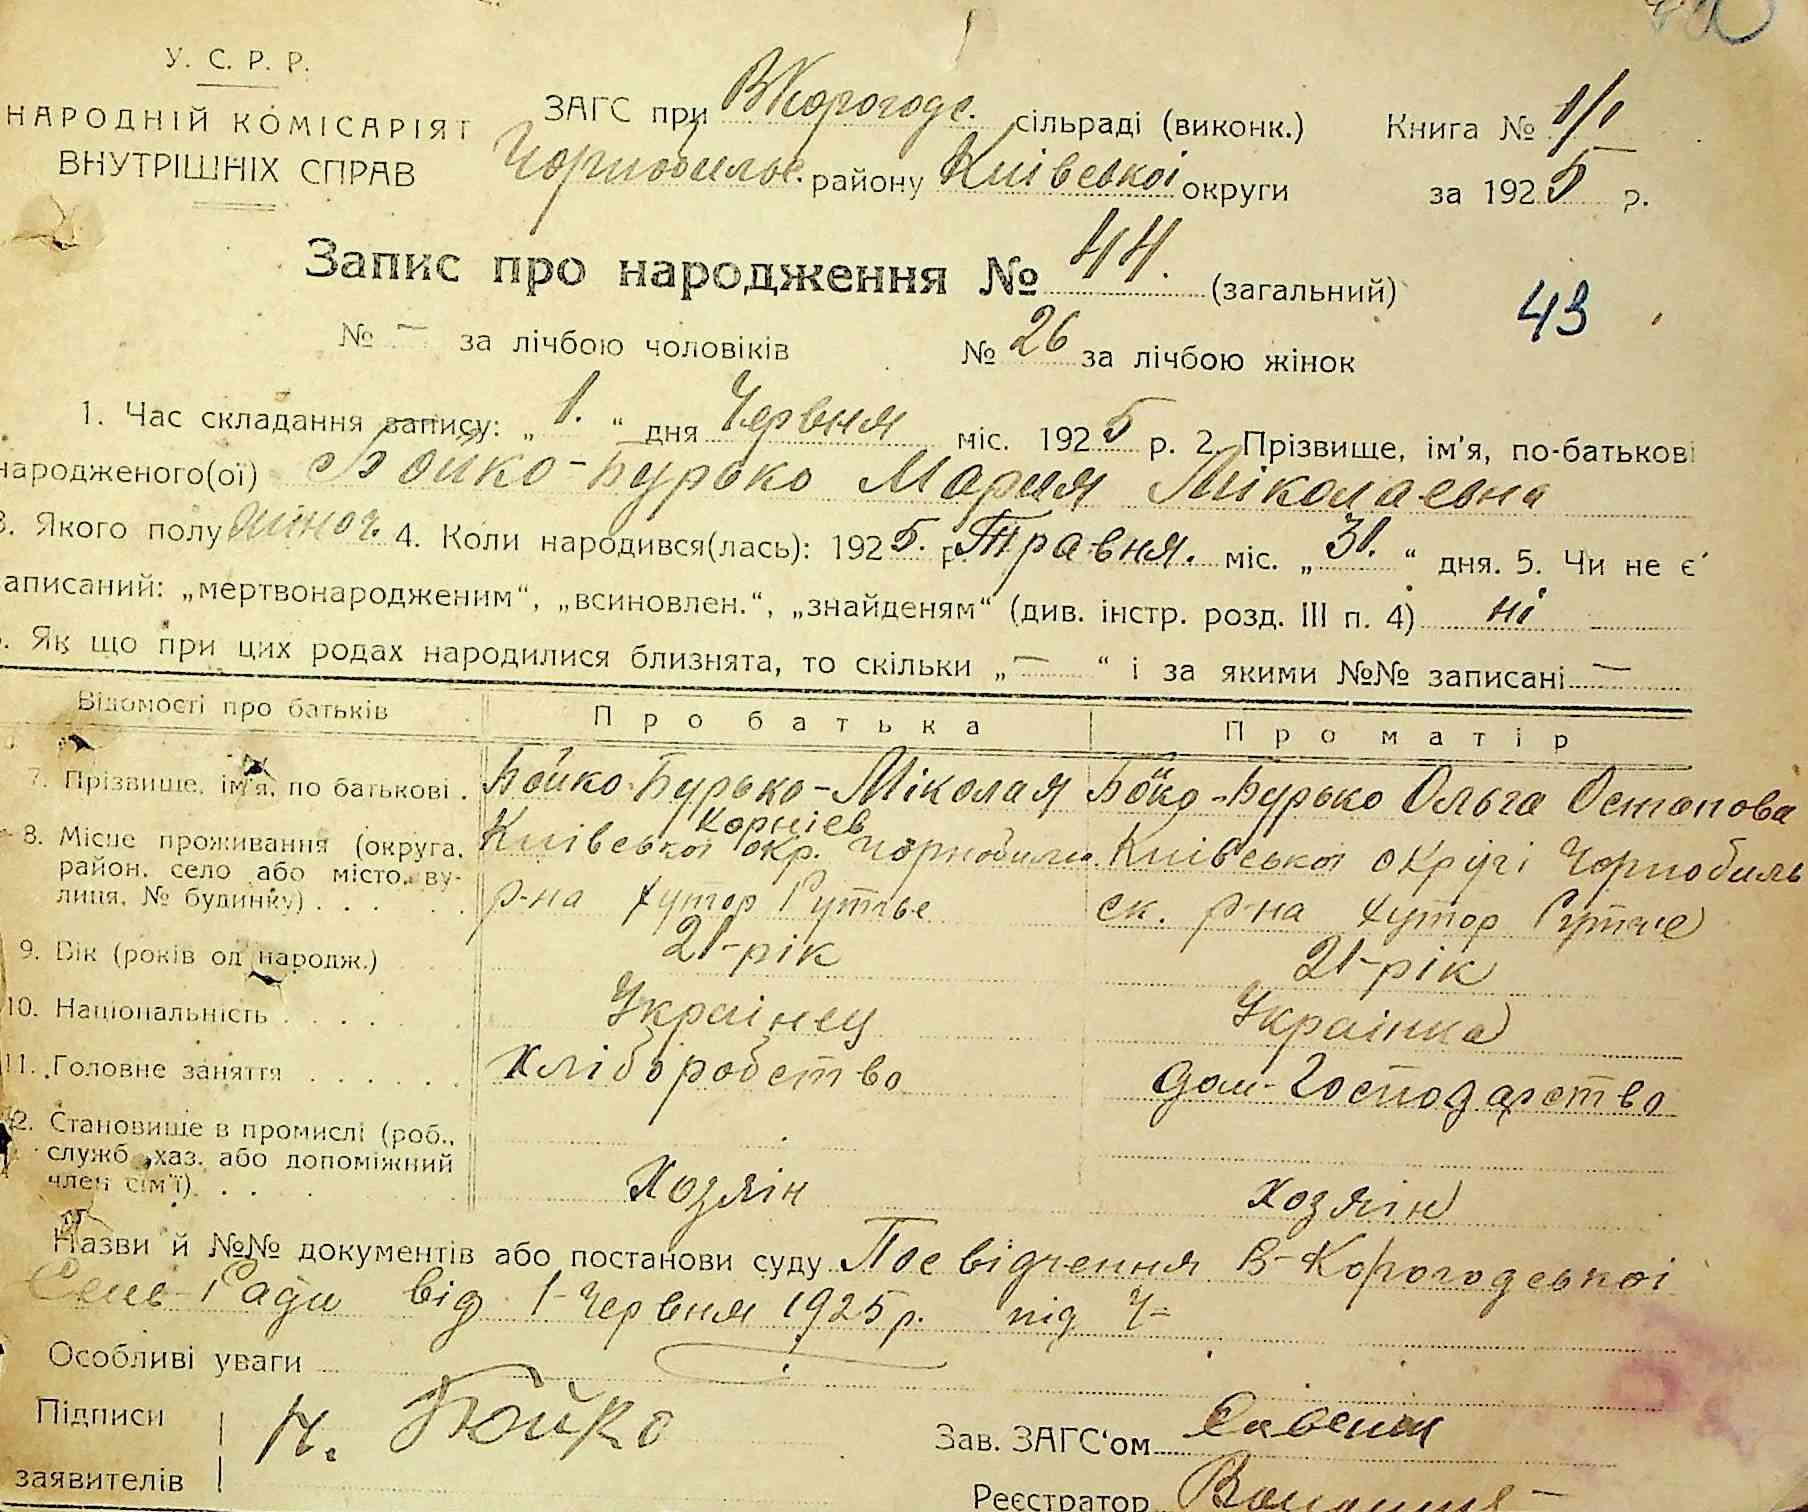 У. С. Р. Р.
НАРОДНІЙ КОМІСАРІЯТ
ВНУТРІШНІХ СПРАВ
ЗАГС при ВКорогодс. сільраді (виконк.)
Чорнобильс. району Киівськоі округи
Книга № 1/1
за 1925 р.
Запис про народження № 44. (загальний)
43
№ — за лічбою чоловіків № 26 за лічбою жінок
1. Час складання запису: „ 1. “ дня Червня міс. 1925 р. 2. Прізвище, ім'я, по-батькові
народженого(ої) Бойко-Бурько Мария Міколаевна
3. Якого полу жіноч. 4. Коли народився(лась): 1925. р. Травня. міс. „ 31. “ дня. 5. Чи не є
записаний: „мертвонародженим“, „всиновлен.“, „знайденям“ (див. інстр. розд. III п. 4) ні
6. Як що при цих родах народилися близнята, то скільки „ — “ і за якими №№ записані —
Відомості про батьків Про батька Про матір
7. Прізвище, ім'я, по батькові . Бойко-Бурько-Міколая Корніев Бойко-Бурько Ольга Остапова
8. Місце проживання (округа, район, село або місто, ву-лиця, № будинку) . . . . .
Киівськоі окр. Чорнобильс.
р-на хутор Рутьве
Киівськоі округі Чорнобиль
ск. р-на хутор
9. Вік (років од народж.) 21-рік 21-рік
10. Національність . . . . . Украінец Украінка
11. Головне заняття . . . . . . Хліборобство дом-Господарство
12. Становище в промислі (роб., служб., хаз. або допоміжний член сім'ї) . . .
Хозяін Хозяін
Назви й №№ документів або постанови суду Посвідчення В-Корогодськоі
Сель-Ради від 1-Червня 1925 р. під Ч-
Особливі уваги
Підписи
заявителів
Н. Бойко
Зав. ЗАГС'ом
Реєстратор